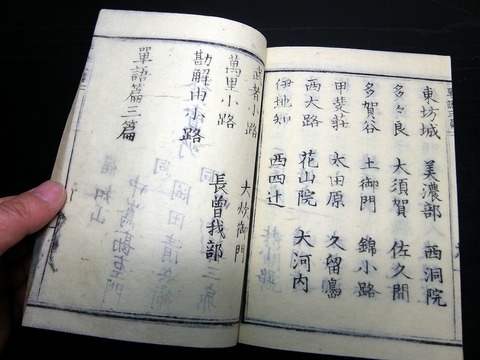 東坊城 美濃部 西洞院
多々良 大須賀 佐久間
多賀谷 土御門 錦小路
甲斐荘 太田原 久留島
西大路 花山院 大河内
伊地知 西四辻
武者小路 大炊御門
萬里小路
勘解由小路 長曽我部
單語篇三篇